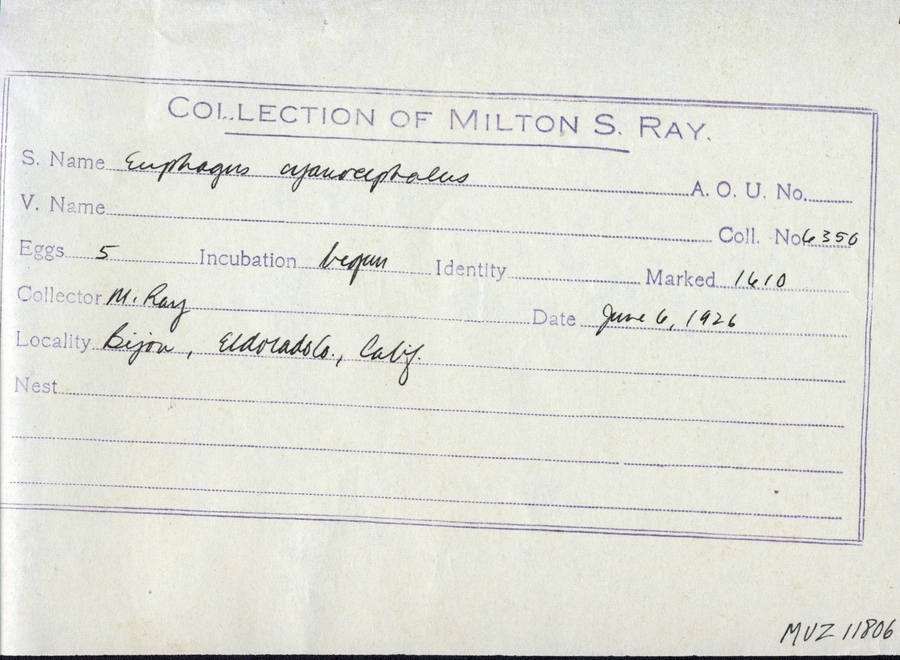 COLLECTION OF MILTON S. RAY.
S. Name Euphagus cyanocephalus A. O. U. No.
V. Name Coll. No 6350
Eggs 5 Incubation begun Identity Marked 1610
Collector M. Ray Date June 6, 1926
Locality Bijou, Eldorado Co., Calif.
Nest
MVZ 11806